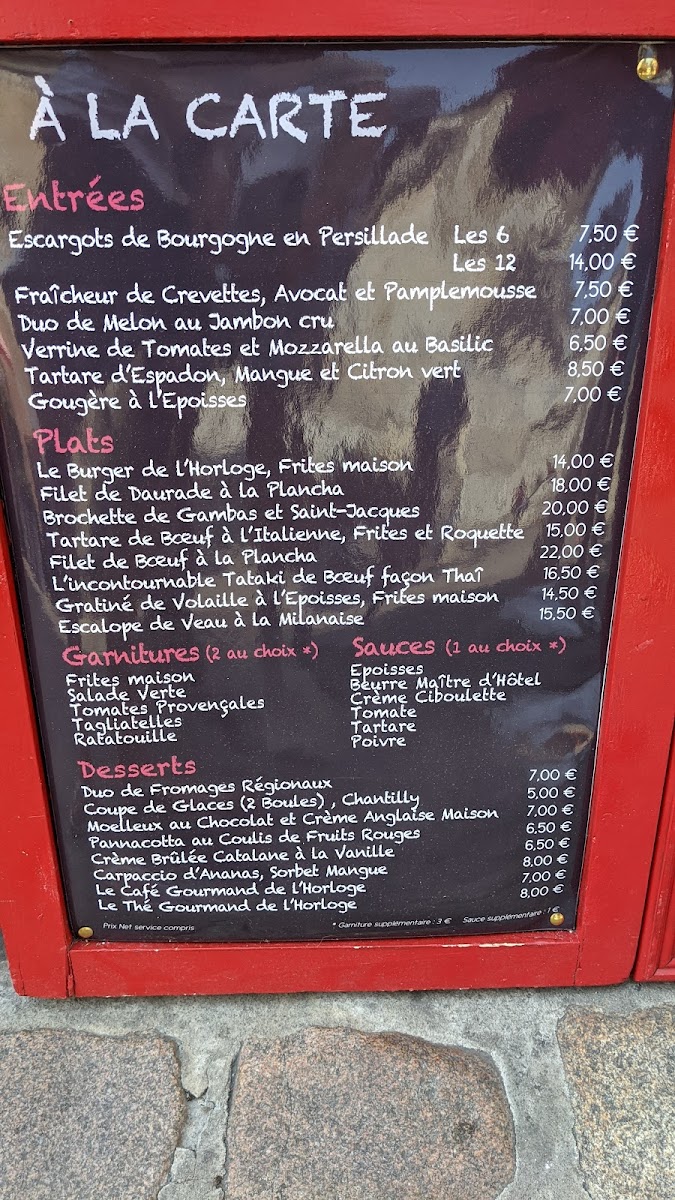 À LA CARTE
Entrées
Escargots de Bourgogne en Persillade Les 6 7,50 €
Les 12 14,00 €
Fraîcheur de Crevettes, Avocat et Pamplemousse 7,50 €
Duo de Melon au Jambon cru 7,00 €
Verrine de Tomates et Mozzarella au Basilic 6,50 €
Tartare d'Espadon, Mangue et Citron vert 8,50 €
Gougère à l'Epoisses 7,00 €
Plats
Le Burger de l'Horloge, Frites maison 14,00 €
Filet de Daurade à la Plancha 18,00 €
Brochette de Gambas et Saint-Jacques 20,00 €
Tartare de Bœuf à l'Italienne, Frites et Roquette 15,00 €
Filet de Bœuf à la Plancha 22,00 €
L'incontournable Tataki de Bœuf façon Thaï 16,50 €
Gratiné de Volaille à l'Epoisses, Frites maison 14,50 €
Escalope de Veau à la Milanaise 15,50 €
Garnitures (2 au choix *)
Frites maison
Salade Verte
Tomates Provençales
Tagliatelles
Ratatouille
Sauces (1 au choix *)
Epoisses
Beurre Maître d'Hôtel
Crème Ciboulette
Tomate
Tartare
Poivre
Desserts
Duo de Fromages Régionaux 7,00 €
Coupe de Glaces (2 Boules) , Chantilly 5,00 €
Moelleux au Chocolat et Crème Anglaise Maison 7,00 €
Pannacotta au Coulis de Fruits Rouges 6,50 €
Crème Brûlée Catalane à la Vanille 6,50 €
Carpaccio d'Ananas, Sorbet Mangue 8,00 €
Le Café Gourmand de l'Horloge 7,00 €
Le Thé Gourmand de l'Horloge 8,00 €
Prix Net service compris * Garniture supplémentaire : 3 € Sauce supplémentaire : 1 €